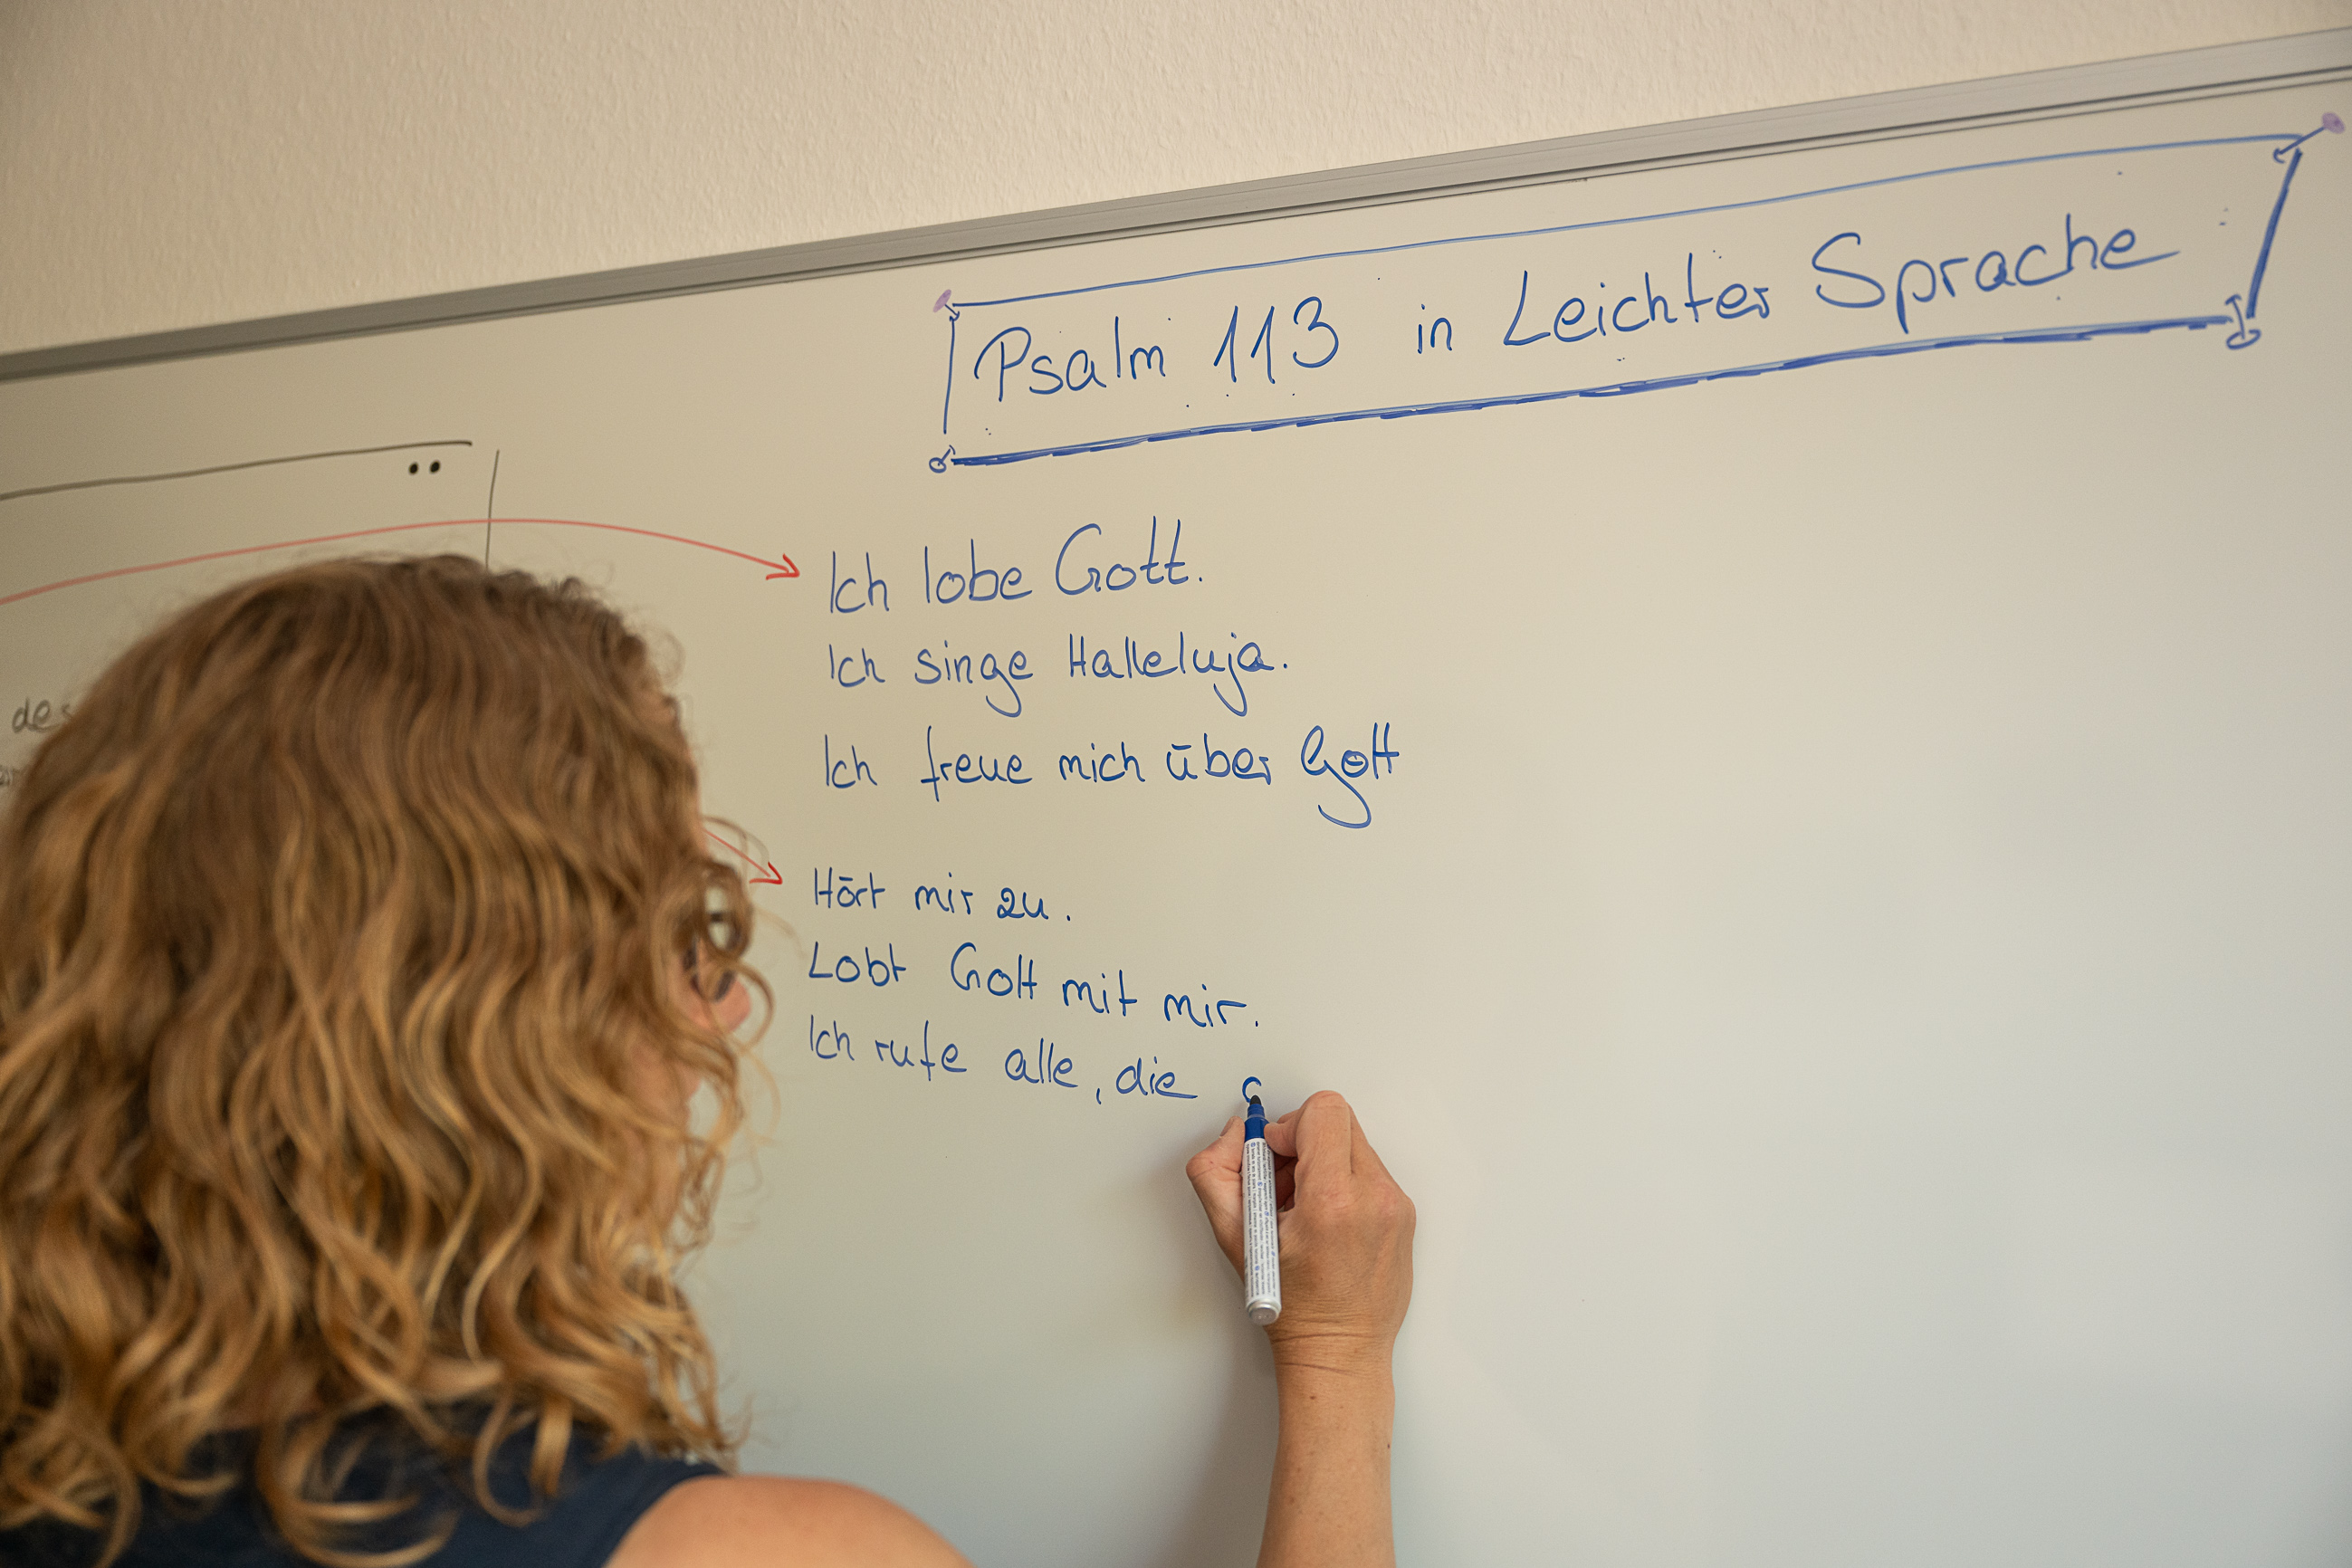 Psalm 113 in Leichter Sprache
Ich lobe Gott.
Ich singe Halleluja.
Ich freue mich über Gott
Hört mir zu.
Lobt Gott mit mir.
Ich rufe alle, die